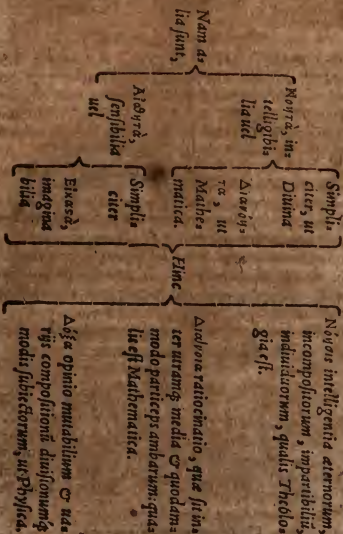 Nam a-
lia sunt,
Νοητὰ, in-
telligibi-
lia uel
Simpli-
citer, ut
Diuina
Διανοη-
τὰ, ut
Mathe-
matica.
Αἰσθητὰ,
sensibilia
uel
Simpli-
citer
Εἰκαστὰ,
imagina
bilia
Hinc
Νόησις intelligentia æternorum,
incompositorum, impartibiliũ,
indiuiduorum, qualis Theolo-
gia est.
Διάνοια ratiocinatio, quæ fit in-
ter utramq; media & quodam-
modo particeps ambarum: qua-
lis est Mathematica.
Δόξα opinio mutabilium & ua-
rijs compositionũ diuisionumq;
modis subiectorum, ut Physica.